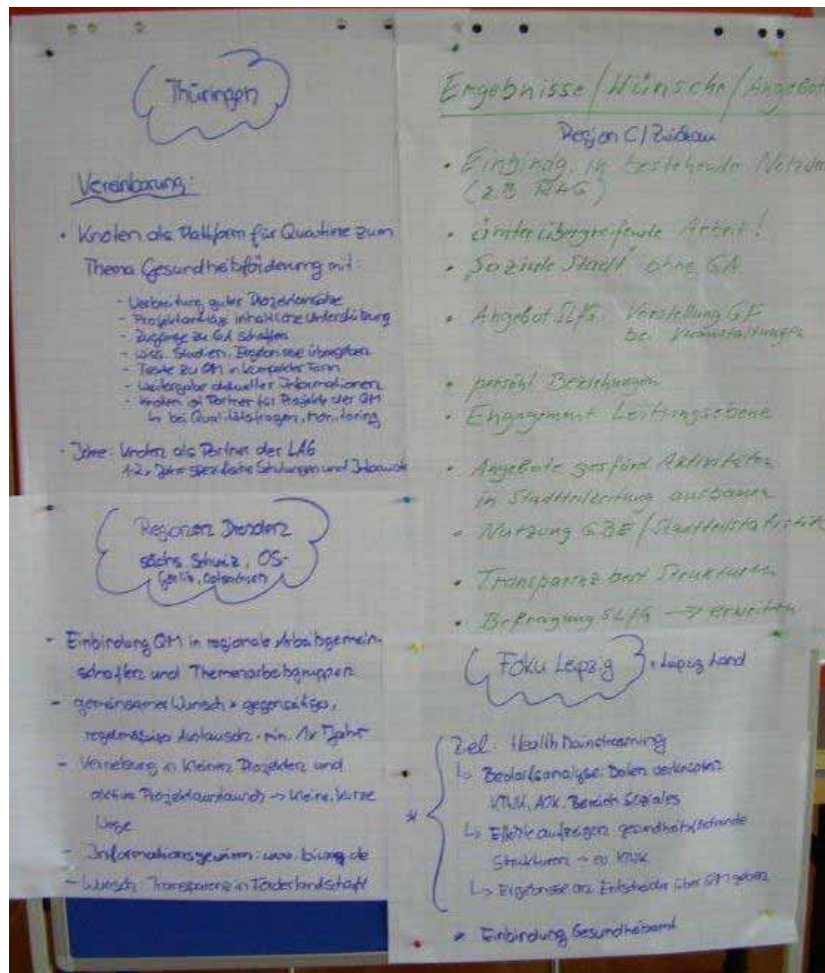 Thüringen
Vereinbarung:
• Knoten als Plattform für Quartiere zum
Thema Gesundheitsförderung mit:
- Verbreitung guter Projektansätze
- Projektanträge inhaltliche Unterstützung
- Zugänge zu GA schaffen
- wiss. Studien, Ergebnisse übergeben
- Texte zu QM in kompakter Form
- Weitergabe aktueller Informationen
- Knoten ist Partner für Projekte der QM
↳ bei Qualitätsfragen, Monitoring
Knoten als Partner der LAG
1-2 x Jahr spezifische Schulungen und
Regionen Dresden
sächs. Schweiz, OS-
Einbindung QM in regionale Arbeitsgemein-
schaften und Themenarbeitsgruppen
- gemeinsamer Wunsch → gegenseitiges,
regelmäßiges Austausch - min. 1x Jahr
- Vernetzung in kleinen Projekten und
Projektaustausch → kleine, kurze
Wege
- Informationsgewinn: www.bzga.de
- Wunsch: Transparenz in Förderlandschaft
Ergebnisse/Wünsche/Angebot
Region C/Zwickau
• Einbindg. in bestehende Netzwe
(zB RAG)
• ämterübergreifende Arbeit!
• "Soziale Stadt" ohne GA
• Angebot SLfG: Vorstellung GF
bei Veranstaltungen
• persönl. Beziehungen
• Engagement Leitungsebene
• Angebote gesförd. Aktivitäten
in Stadtteilzeitung ausbauen
• Nutzung GBE/Stadtteilstatistik
• Transparenz best. Strukturen
• Befragung SLfG → erweitern
Foku Leipzig + Leipzig Land
Ziel: Health Mainstreaming
↳ Bedarfsanalyse: Daten
AOK, Bereich Soziales
↳ Effekte aufzeigen gesundheitsfördernde
Strukturen →
↳ Ergebnisse an Entscheider über QM geben
* Einbindung Gesundheitsamt